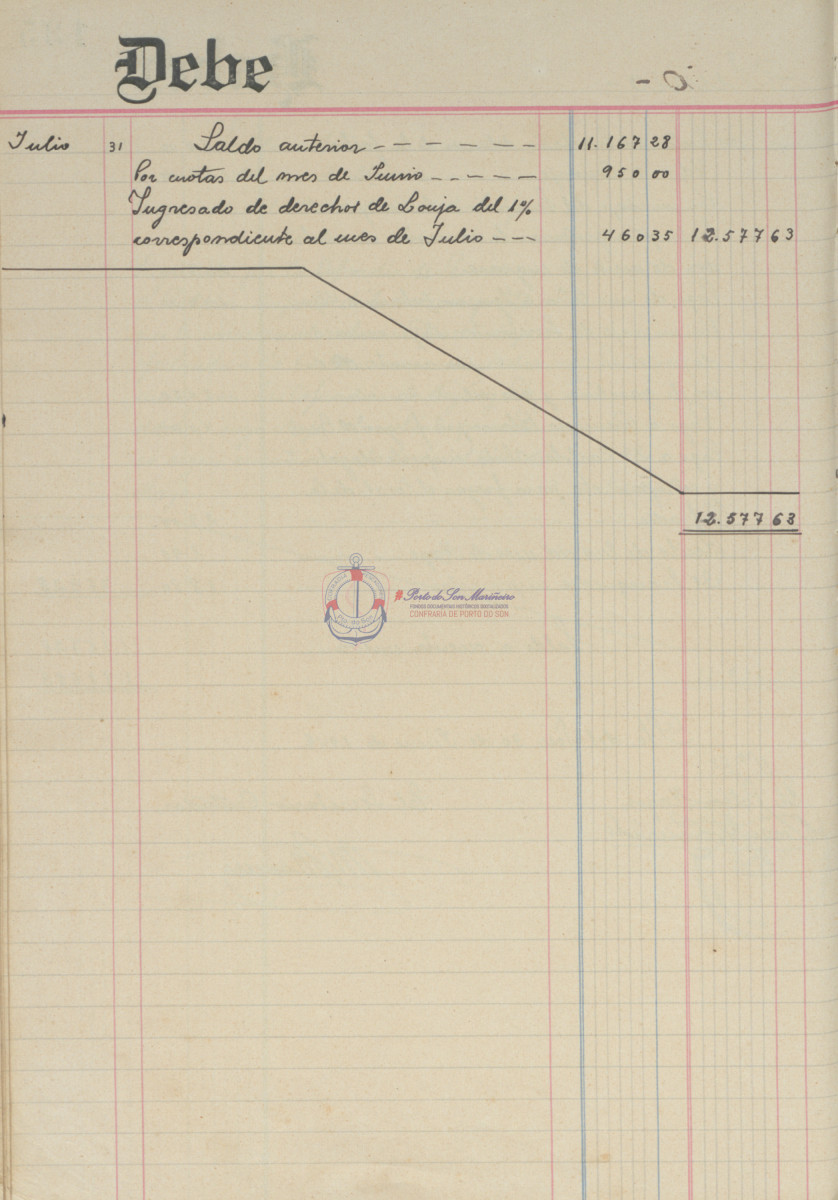 Debe
- 0
Julio 31 Saldo anterior - - - - - - 11.167 28
Por cuotas del mes de Junio - - - - 950 00
Ingresado de derechos de Lonja del 1%
correspondiente al mes de Julio - - - 460 35 12.577 63
12.577 63
#Porto do Son Mariñeiro
FONDOS DOCUMENTAIS HISTÓRICOS DIXITALIZADOS
CONFRARÍA DE PORTO DO SON